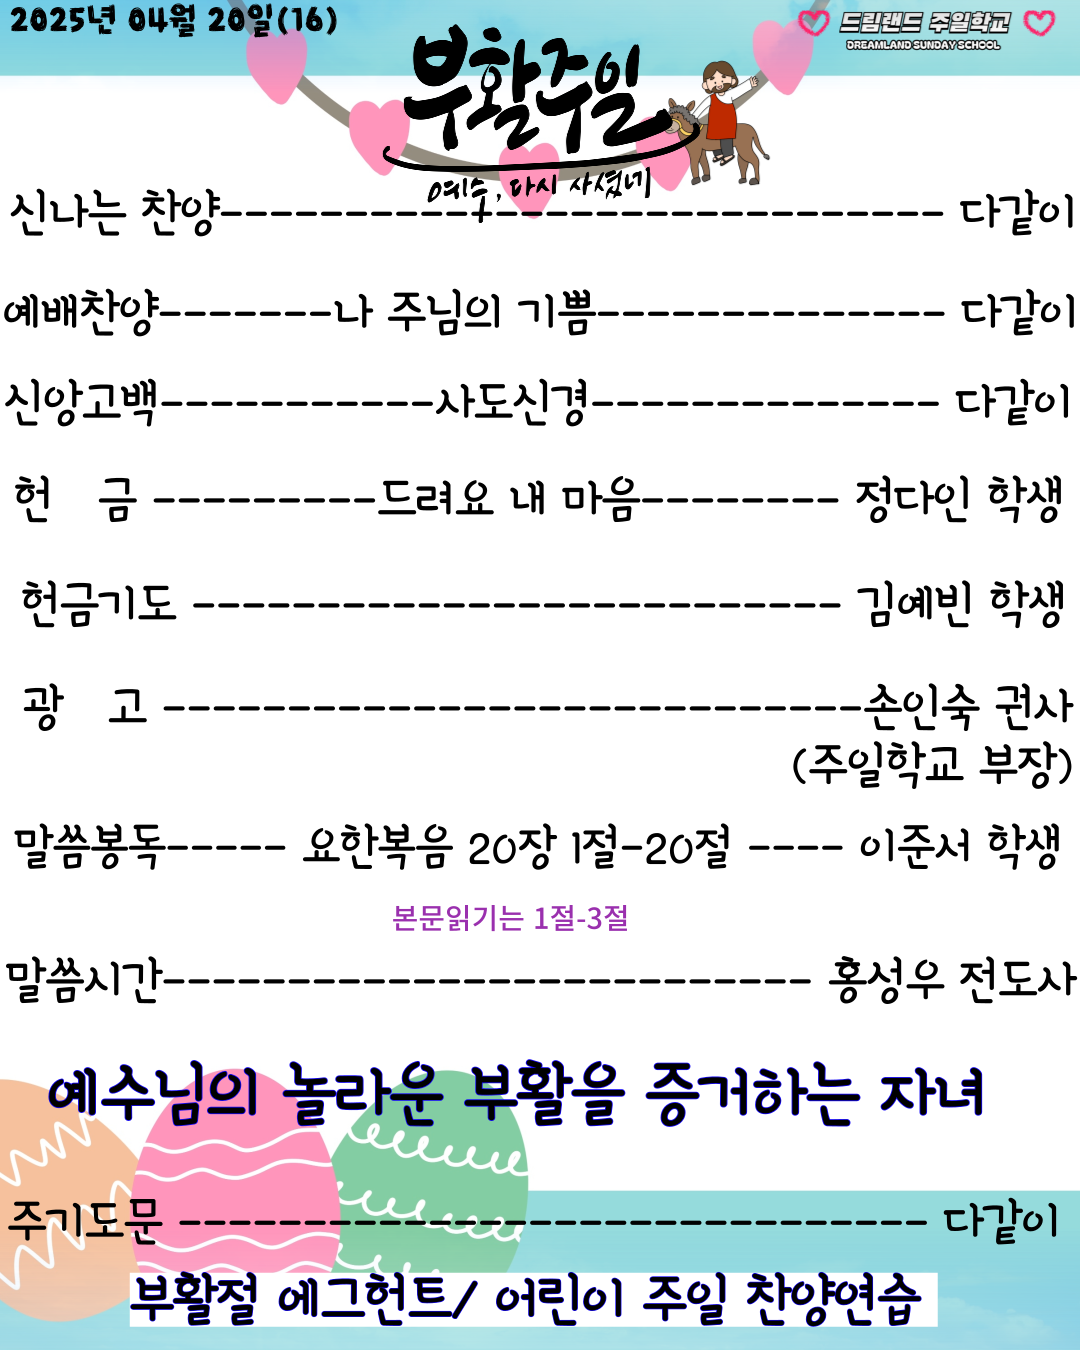 2025년 04월 20일(16)
드림랜드 주일학교
DREAMLAND SUNDAY SCHOOL
부활주일
예수, 다시 사셨네
신나는 찬양----------------------------- 다같이
예배찬양-------나 주님의 기쁨-------------- 다같이
신앙고백-----------사도신경-------------- 다같이
헌 금 ---------드려요 내 마음-------- 정다인 학생
헌금기도 -------------------------- 김예빈 학생
광 고 ----------------------------손인숙 권사
(주일학교 부장)
말씀봉독----- 요한복음 20장 1절-20절 ---- 이준서 학생
본문읽기는 1절-3절
말씀시간-------------------------- 홍성우 전도사
예수님의 놀라운 부활을 증거하는 자녀
주기도문 ------------------------------ 다같이
부활절 에그헌트/ 어린이 주일 찬양연습